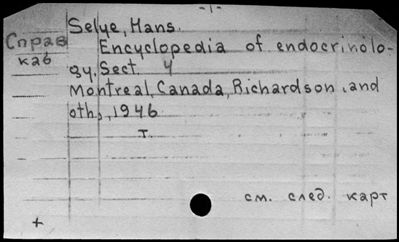 -1-
Selye, Hans.
Справ Encyclopedia of endocrinolo-
каб gy, Sect. 4
Montreal, Canada, Richardson, and
oth., 1946
т.
см. след. карт
+